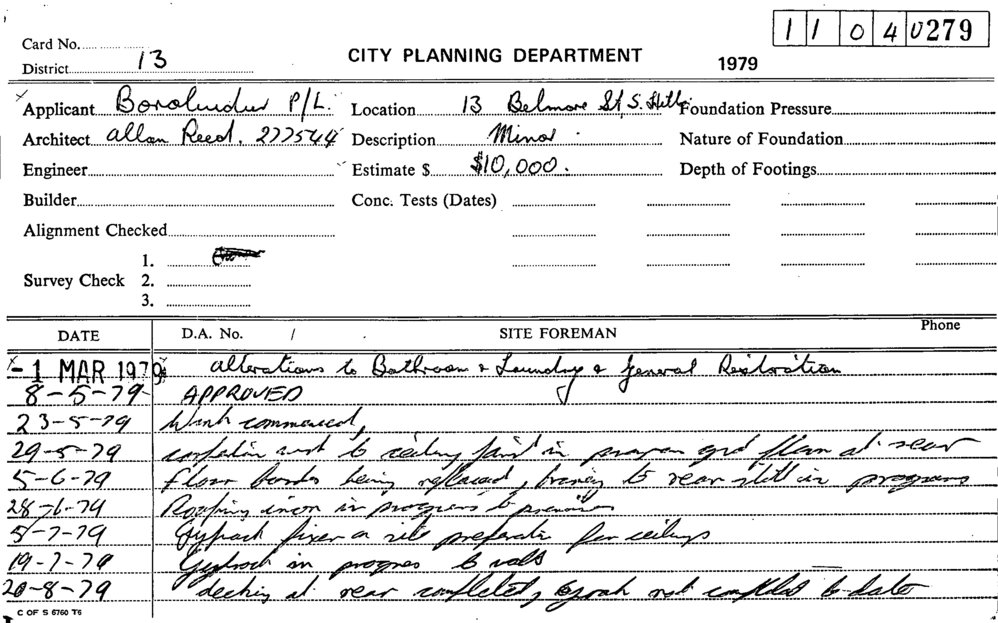 1 1 0 4 0279
Card No.
District 13
CITY PLANNING DEPARTMENT
1979
Applicant P/L. Location 13 Belmore St, S. Hills Foundation Pressure
Architect Allan Reed. 277544 Description Minor. Nature of Foundation
Engineer Estimate $ $10,000. Depth of Footings
Builder Conc. Tests (Dates)
Alignment Checked
1.
Survey Check 2.
3.
DATE D.A. No. / SITE FOREMAN Phone
-1 MAR 1979 Alterations to Bathroom & Laundry & General Restoration
8-5-79 APPROVED
23-5-79 Work commenced,
29-5-79 work to ceiling in grd floor at rear
5-6-79 Floor boards being replaced, to rear still in progress
28-6-79 Roofing iron in progress to premises
5-7-79 Gyprock fixer on site for ceilings
19-7-79 Gyprock in progress to walls
20-8-79 decking at rear completed, not completed to date
C OF S 6760 T6